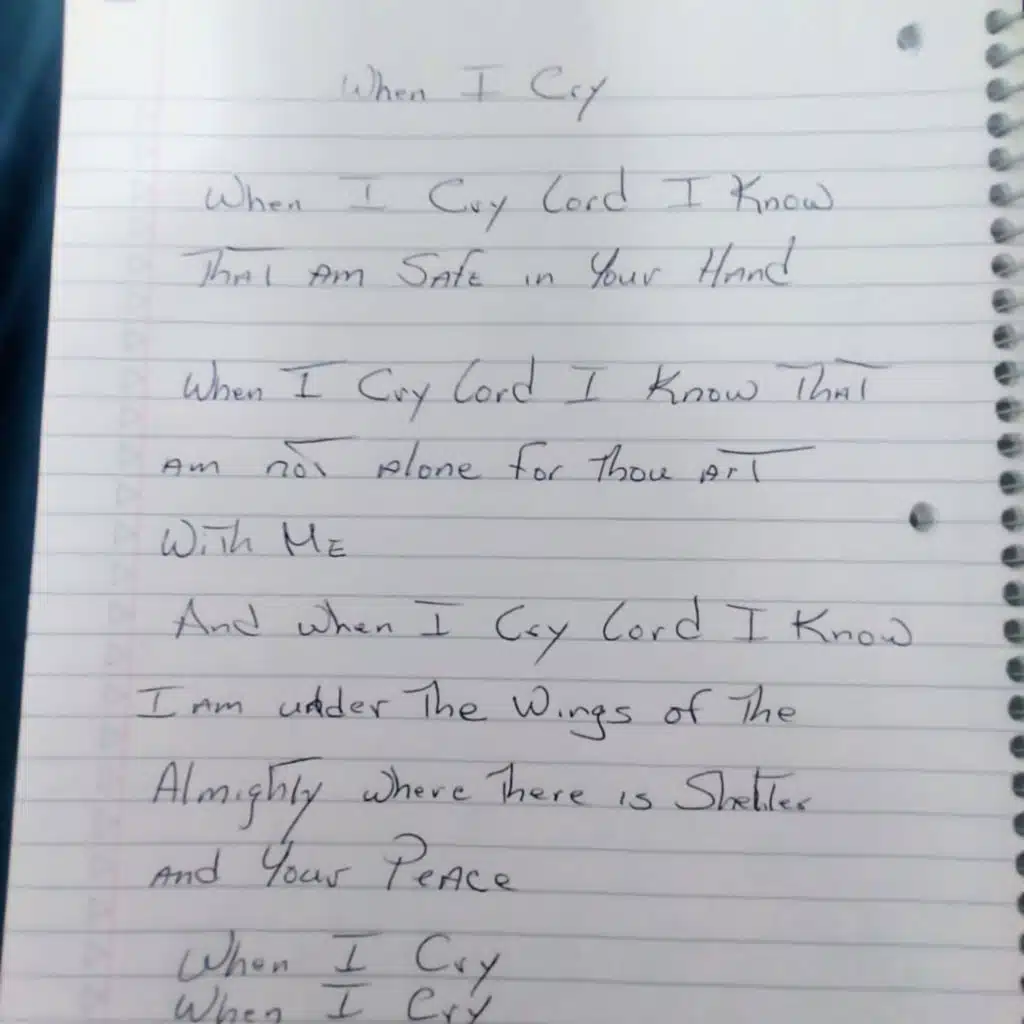 When I Cry
When I Cry Lord I Know
That Am Safe in Your Hand
When I Cry Lord I Know That
Am not Alone for Thou Art
With Me
And when I Cry Lord I Know
I Am under The Wings of The
Almighty where There is Shelter
And Your Peace
When I Cry
When I Cry